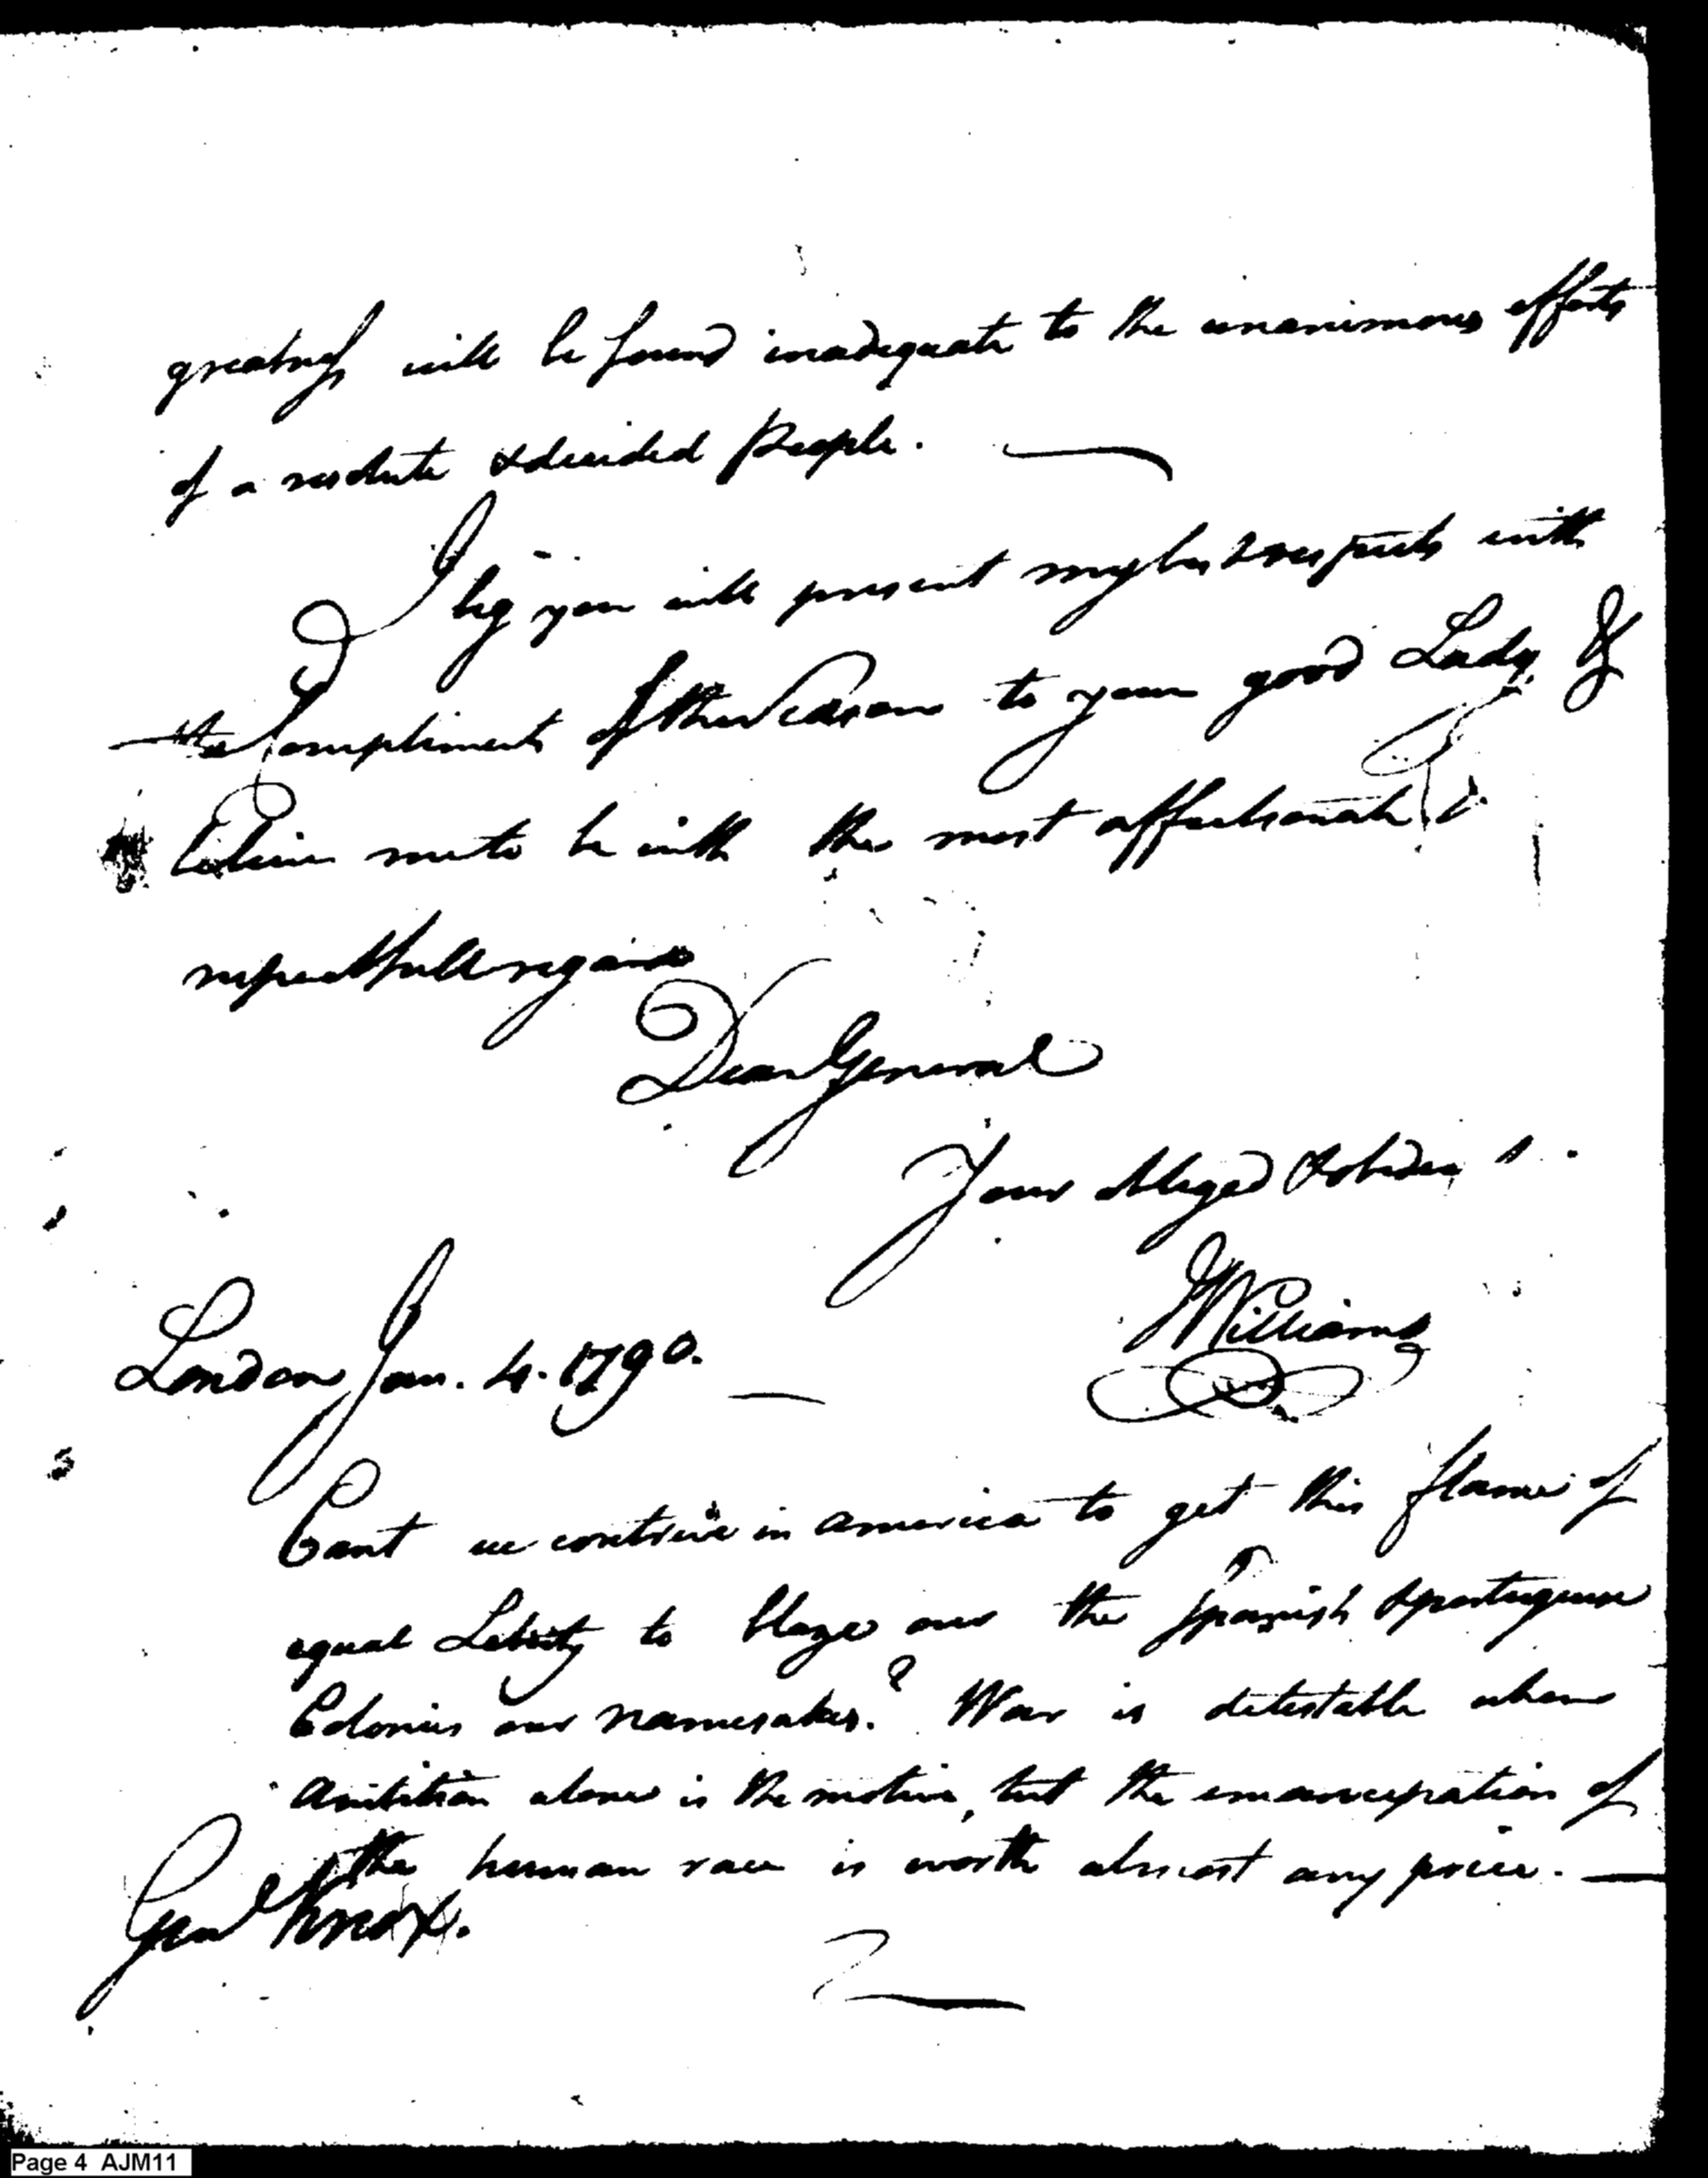 greatness will be found inadequate to the unanimous efforts
of a resolute & decided people.
I beg you will present my best respects with
the Compliments of the Season to your good Lady &
believe me to be with the most affectionate &
respectfull regards
Dear General
Your obliged
Williams
London Jan. 4. 1790.
Cant we contrive in america to get this flame of
equal Liberty to blaze over the Spanish & portuguese
Colonies our namesakes? War is detestable when
Ambition alone is the motive, but the emancipation of
the human race is worth almost any price.
Genl Knox.
Page 4 AJM11